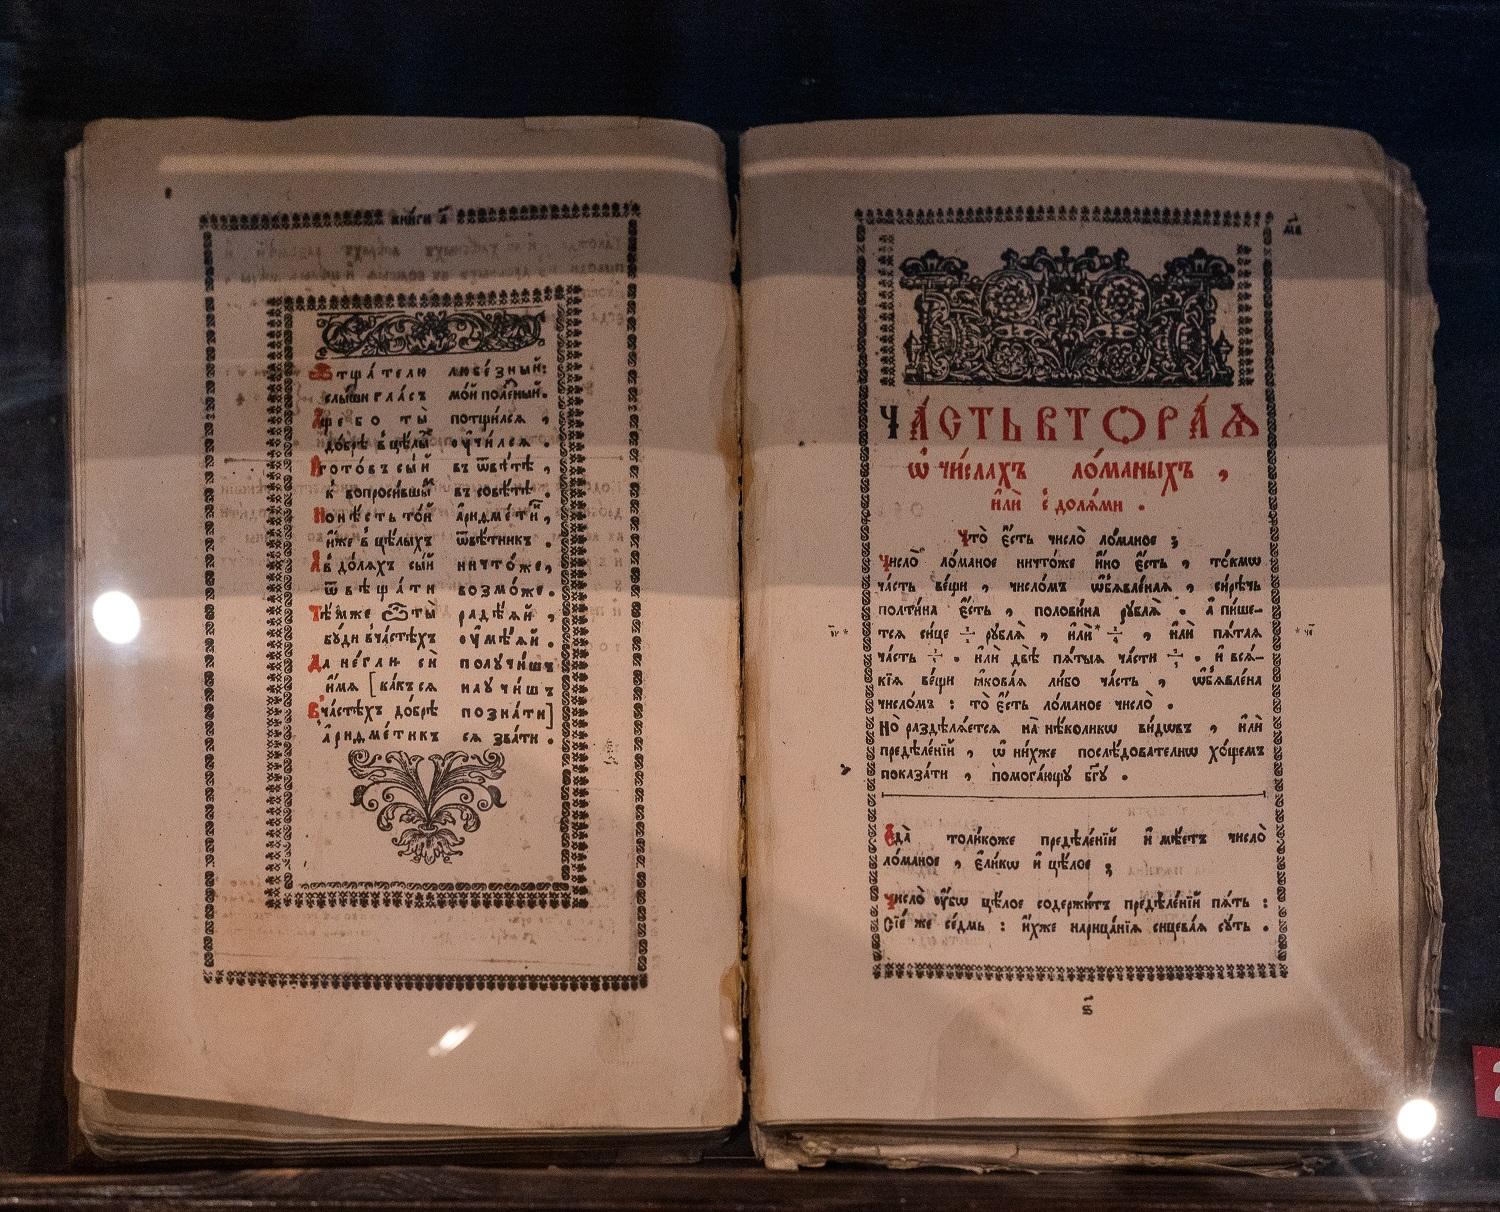 КНИ́ГИ А҃
Ѿтща́телю любе́зный:
слы́ши гла́съ мо́й поле́зный.
А҆́ще бо ты̀ потщи́лсѧ,
до́брѣ в̾ цѣ́лы́ оу҆чи́лсѧ.
гото́въ сы́й въ ѿвѣ́тѣ,
к̾ вопроси́вшы́ въ совѣ́тѣ.
Но нѣ́сть то́й а҆риѳме́ти́,
и҆́же в̾ цѣ́лыхъ ѿвѣ́тникъ.
А҆ в̾ до́лѧхъ сы́й ничто́же,
ѿвѣща́ти возмо́же.
Тѣ́мже ѽ ты̀ радѣ́ѧй,
бу́ди в̾ ча́стѣхъ оу҆мѣ́ѧй.
Да не́гли сѝ полꙋ́чишъ
и҆́мѧ [ва́къ сѧ наꙋ́чишъ
В̾ ча́стѣхъ до́брѣ позна́ти]
а҆риѳме́тикъ сѧ зва́ти.
м҃в
ЧА́СТЬ ВТОРА́Ѧ
ѡ҆ чи́слахъ ло́маныхъ,
и҆лѝ с̾ до́лѧми.
Что̀ є҆́сть число̀ ло́маное;
Число̀ ло́маное ничто́же и҆́но є҆́сть, то́кмѡ
ча́сть ве́щи, число́мъ ѡ҆б̾ѧвле́наѧ, си́рѣчь
полти́на є҆́сть, полови́на рублѧ̀. а҆ пи́ше-
тсѧ си́це рублѧ̀, и҆лѝ, и҆лѝ пѧ́таѧ
ча́сть. и҆лѝ двѣ̀ пѧ́тыѧ ча́сти. и҆ всѧ́-
кїѧ ве́щи ꙗ҆кова́ѧ ли́бо ча́сть, ѡ҆б̾ѧвле́на
число́мъ: то̀ є҆́сть ло́маное число̀.
Но̀ раздѣлѧ́етсѧ на нѣ́колики ви́дѡвъ, и҆лѝ
предѣле́нїй, ѡ҆ ни́хже послѣ́дователнѡ хо́щемъ
показа́ти, помога́ющꙋ бг҃ꙋ.
Є҆да̀ толи́коже предѣле́нїй и҆́мѣетъ число̀
ло́маное, є҆ли́кѡ и҆ цѣ́лое;
Число̀ оу҆́бѡ цѣ́лое содержи́тъ предѣле́нїй пѧ́ть:
Сїе́ же се́дмь: и҆́хже нарица́нїѧ сицева́ѧ сꙋ́ть.